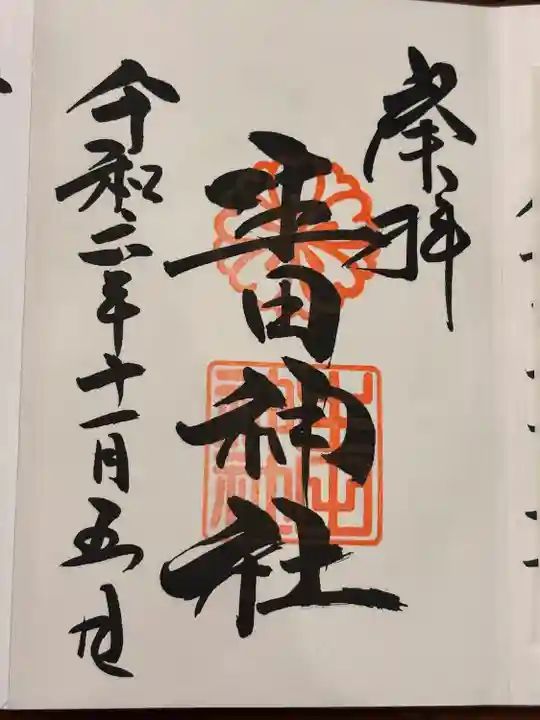 奉拝
生田神社
令和六年十一月五日